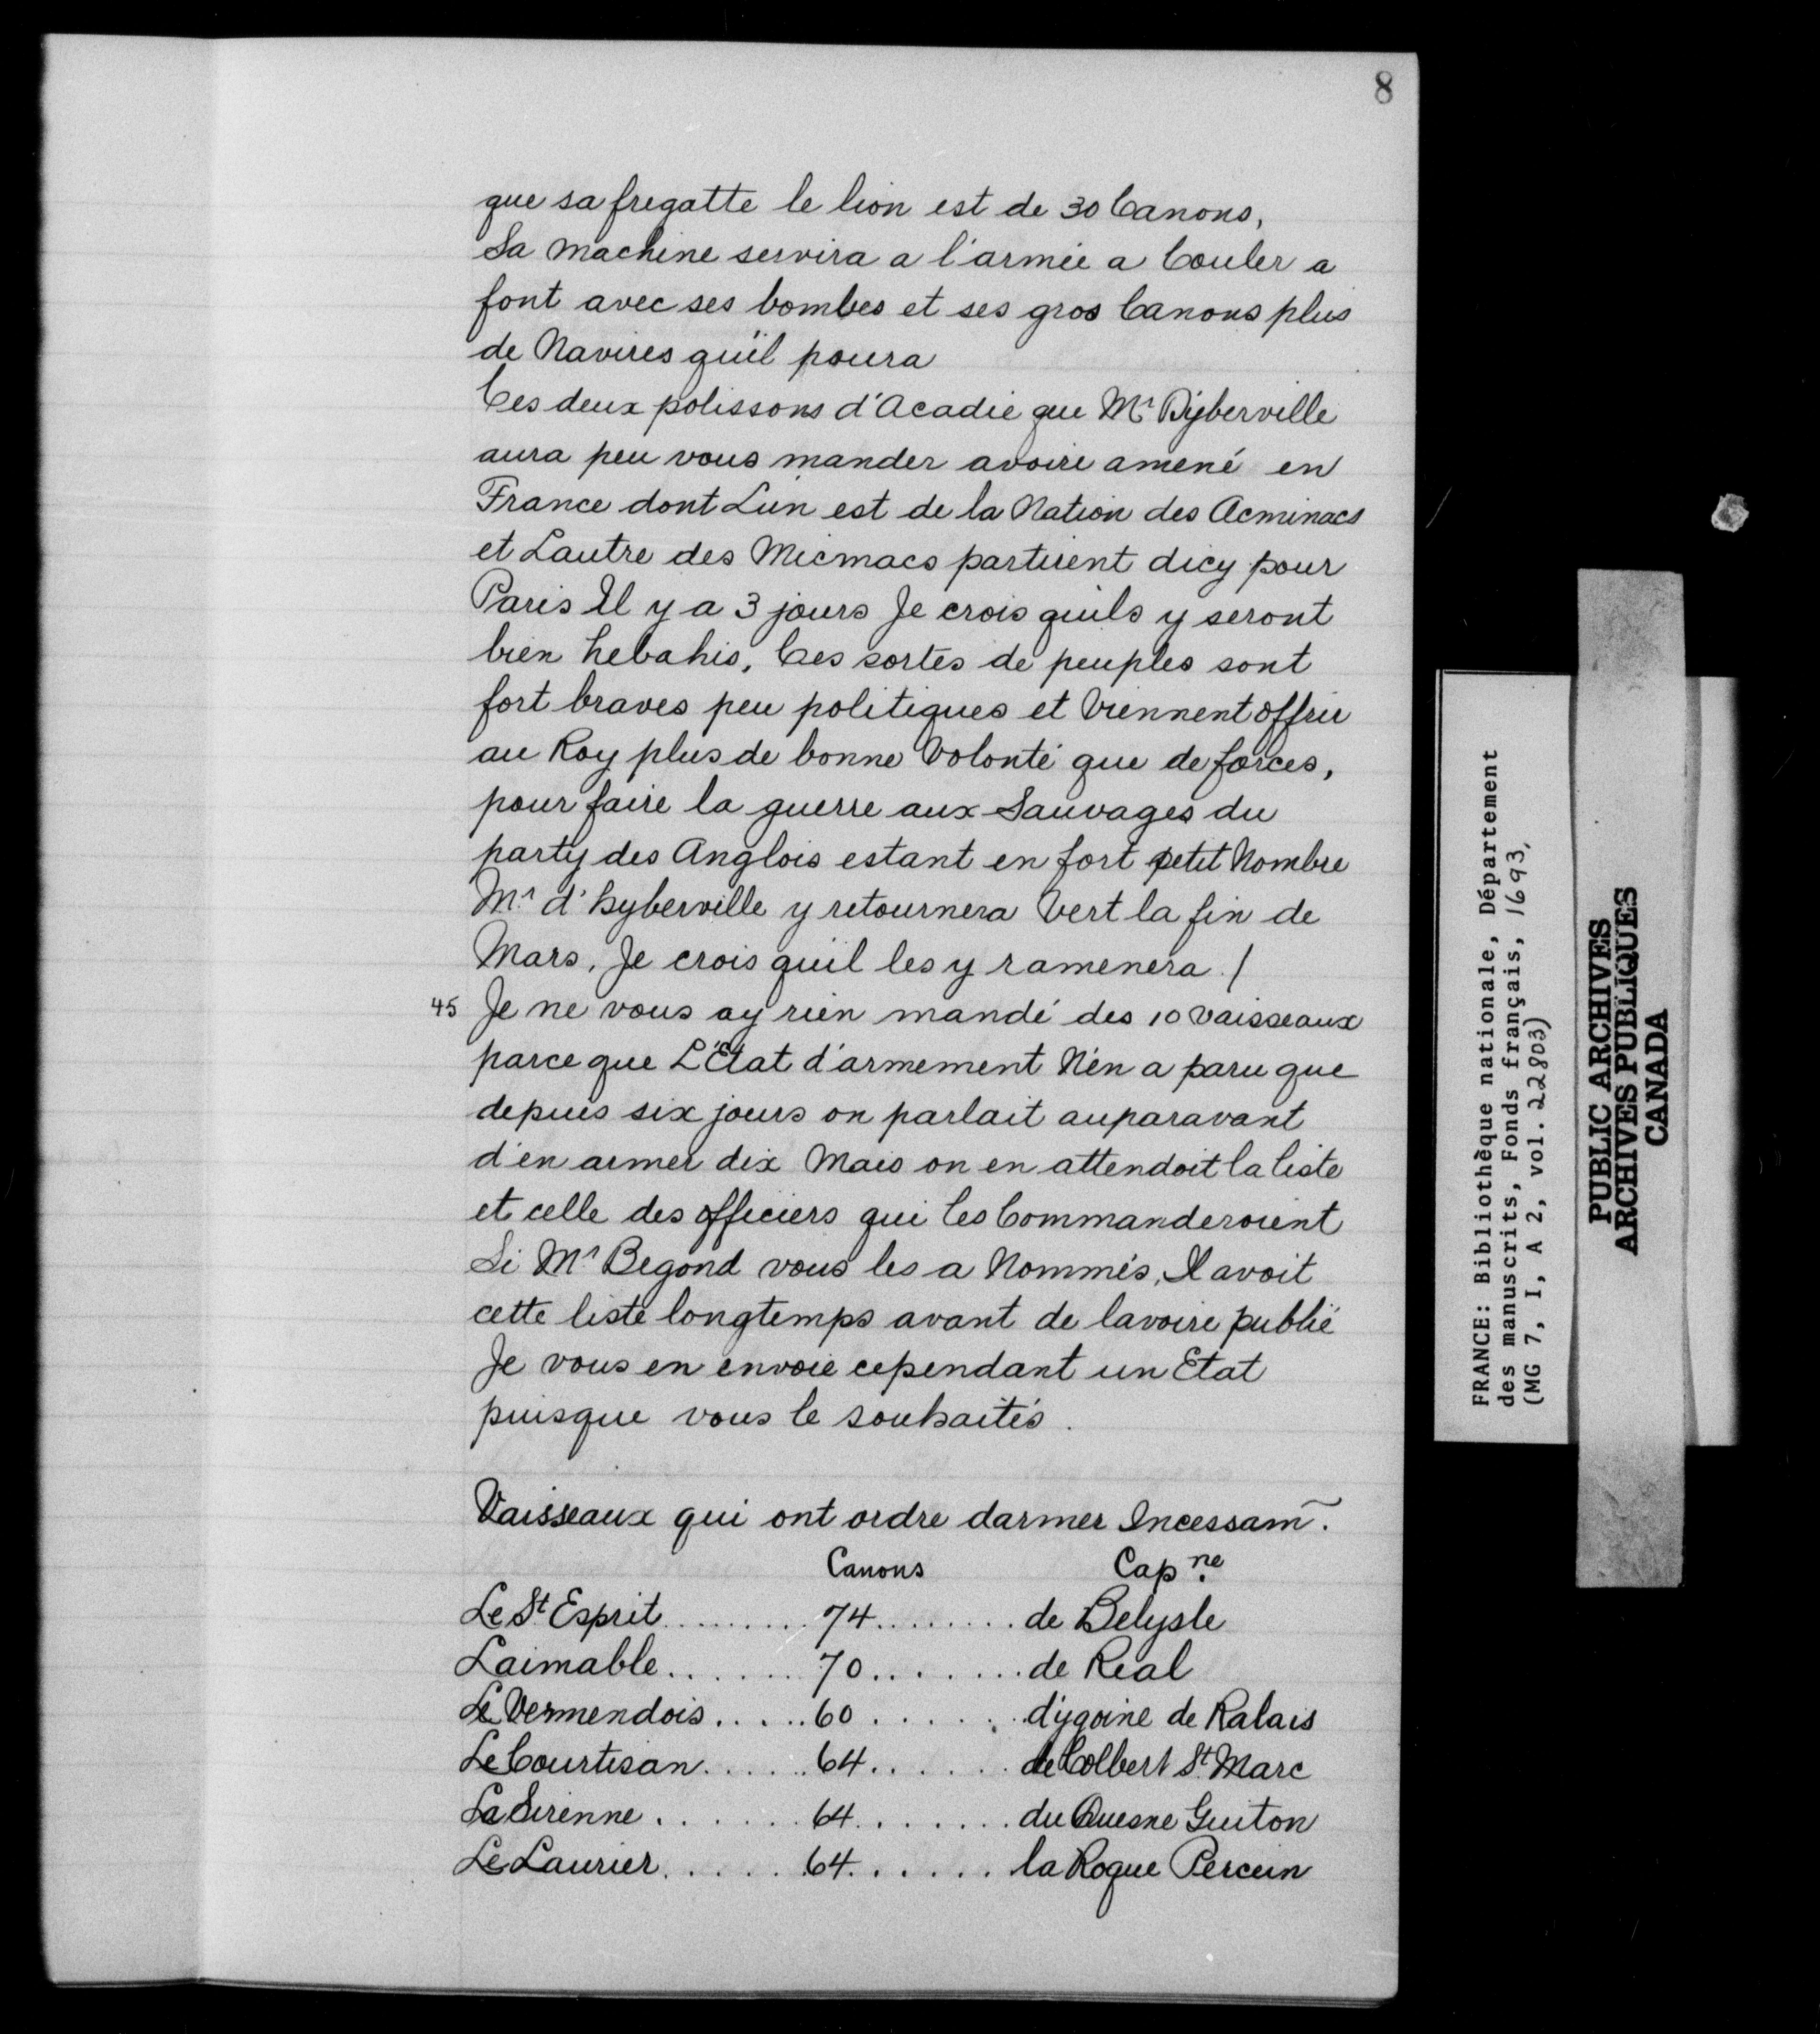 8
que sa fregatte le lion est de 30 Canons,
Sa machine servira a l'armée a Couler a
font avec ses bombes et ses gros Canons plus
de Navires qu'il poura
Ces deux polissons d'Acadie que Mr Dyberville
aura peu vous mander avoire amené en
France dont Lun est de la Nation des Acminacs
et Lautre des Micmacs partirent dicy pour
Paris Il y a 3 jours Je crois quils y seront
bien hebahis, Ces sortes de peuples sont
fort braves peu politiques et Viennent offrir
au Roy plus de bonne Volonté que de forces,
pour faire la guerre aux Sauvages du
party des Anglois estant en fort petit Nombre
Mr d'hyberville y retournera Vert la fin de
Mars, Je crois qu'il les y ramenera ./
45 Je ne vous ay rien mandé des 10 vaisseaux
parce que L'Etat d'armement N'en a paru que
depuis six jours on parlait auparavant
d'en armer dix Mais on en attendoit la liste
et celle des officiers qui les Commanderoient
Si Mr Begond vous les a Nommés, Il avoit
cette liste longtemps avant de lavoire publié
Je vous en envoie cependant un Etat
puisque vous le souhaités.
Vaisseaux qui ont ordre darmer Incessam~.
Canons Capne
Le St Esprit ......... 74 ........ de Belysle
Laimable ....... 70 ....... de Real
Le Vermendois ..... 60 ...... d'ygoine de Ralais
Le Courtisan ..... 64 ...... de Colbert St Marc
La Sirenne ...... 64 ....... du Quesne Guiton
Le Laurier ..... 64 ...... la Roque Percein
FRANCE: Bibliothèque nationale, Département
des manuscrits, Fonds français, 1693,
(MG 7, I, A 2, vol. 22803)
PUBLIC ARCHIVES
ARCHIVES PUBLIQUES
CANADA